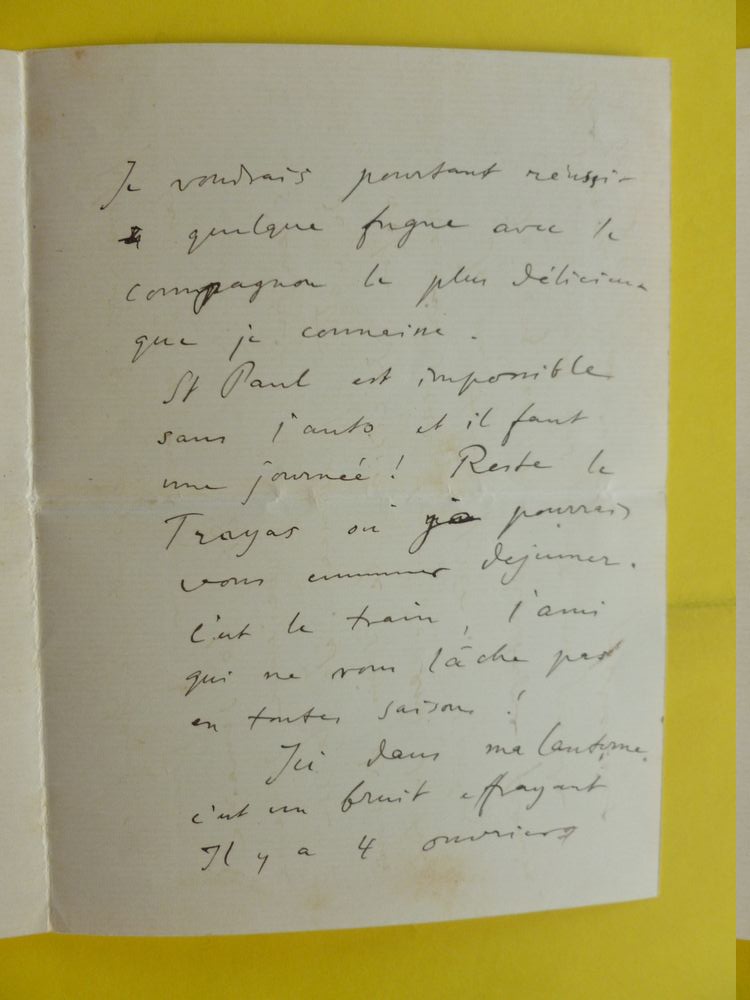 Je voudrais pourtant réussir
à quelque fugue avec le
compagnon le plus délicieux
que je connaisse.
St Paul est impossible
sans l'auto et il faut
une journée! Reste le
Trayas où je pourrais
vous emmener dejeuner.
C'est le train, l'ami
qui ne vous lâche pas
en toutes saisons!
Ici dans ma lanterne
c'est un bruit effrayant
Il y a 4 ouvriers